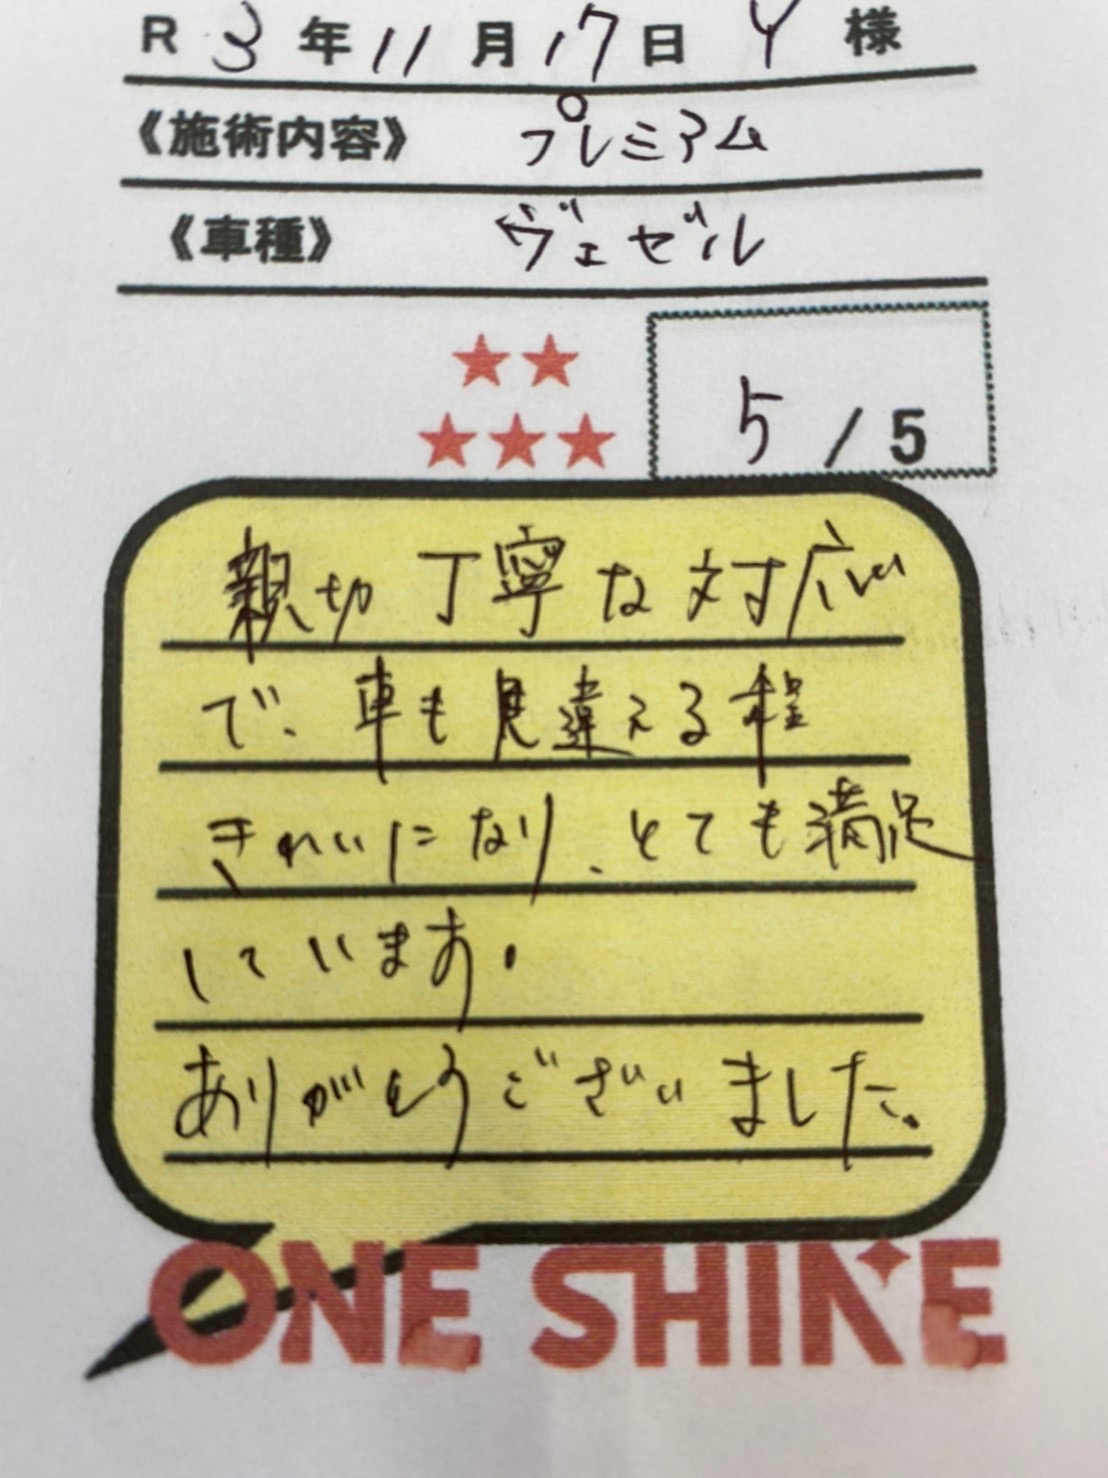 R 3年11月17日 Y 様
《施術内容》 プレミアム
《車種》 ヴェゼル
5/5
親切丁寧な対応
で、車も見違える程
きれいになり、とても満足
しています。
ありがとうございました。
ONE SHINE